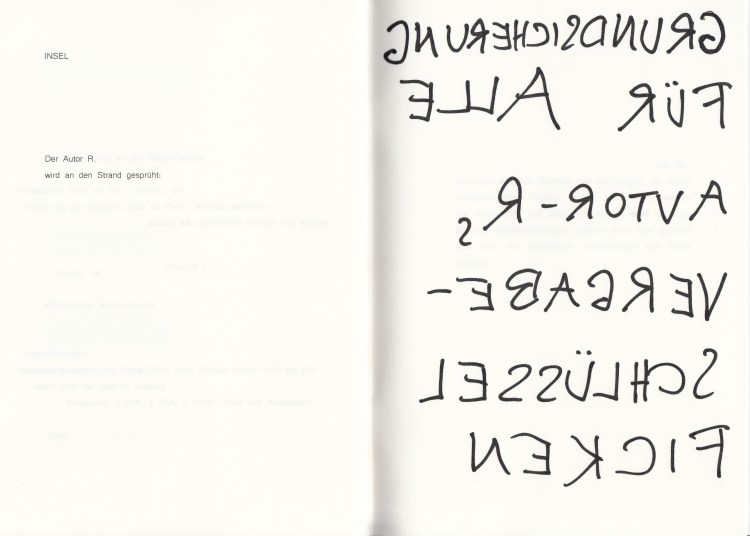 INSEL
Der Autor R.
wird an den Strand gesprüht:
GRUNDSICHERUNG
FÜR ALLE
AUTOR-R2
VERGABE-
SCHLÜSSEL
FICKEN